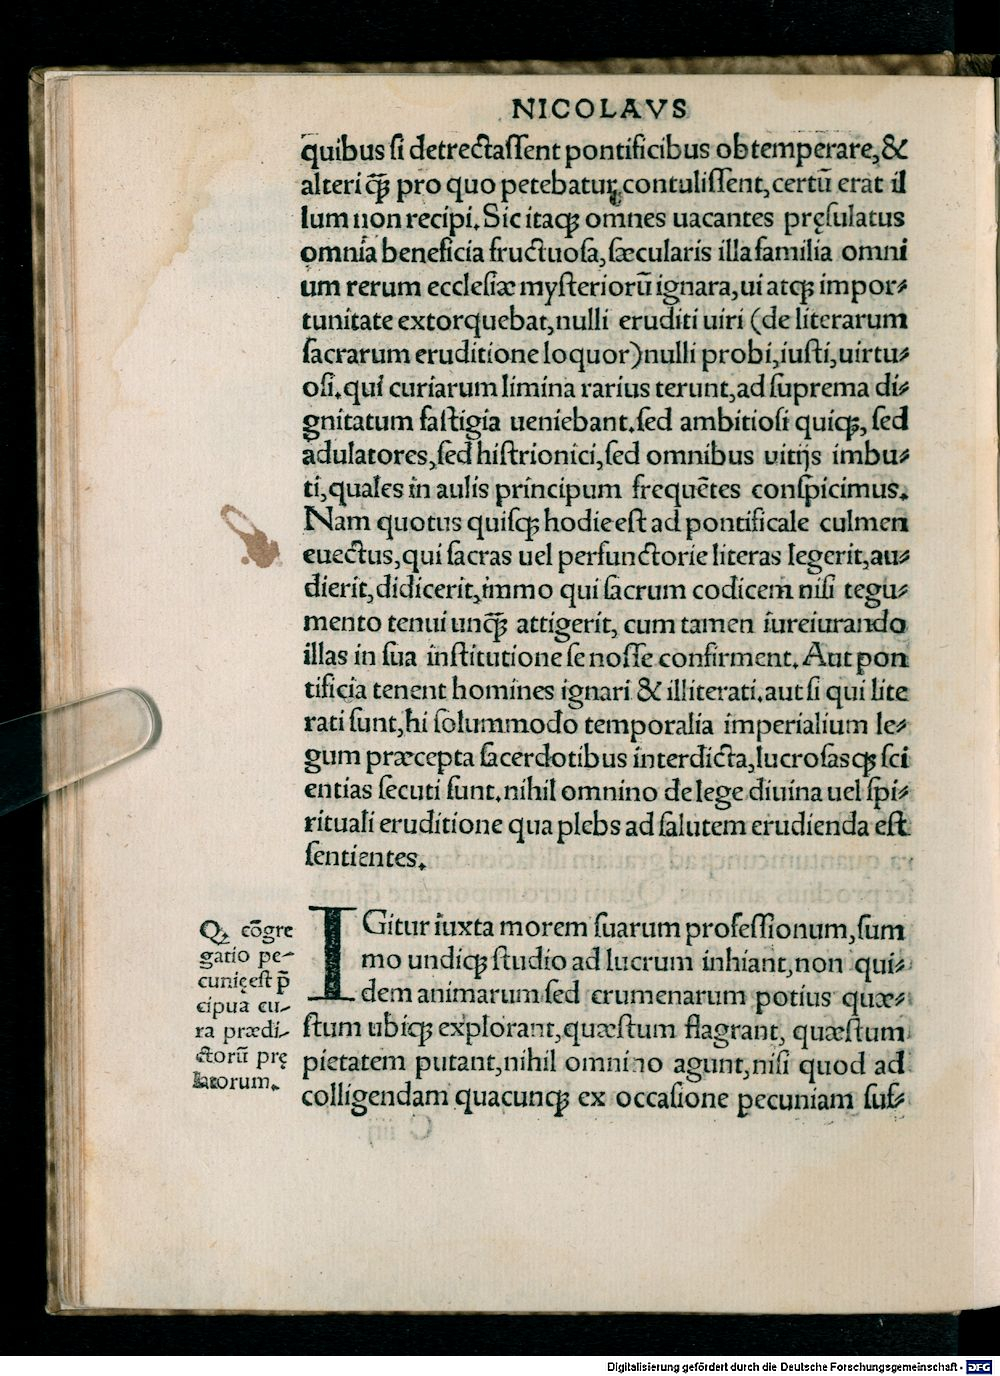 NICOLAVS
quibus ſi detrectaſſent pontificibus obtemperare, &
alteri q̃ȝ pro quo petebatur, contuliſſent, certũ erat il
lum non recipi. Sic itaqȝ omnes uacantes pręſulatus
omnia beneficia fructuoſa, ſæcularis illa familia omni
um rerum eccleſiæ myſteriorũ ignara, ui atqȝ impor⸗
tunitate extorquebat, nulli eruditi uiri (de literarum
ſacrarum eruditione loquor) nulli probi, iuſti, uirtu⸗
oſi. qui curiarum limina rarius terunt, ad ſuprema di⸗
gnitatum faſtigia ueniebant. ſed ambitioſi quiqȝ, ſed
adulatores, ſed hiſtrionici, ſed omnibus uitijs imbu⸗
ti, quales in aulis principum frequẽtes conſpicimus.
Nam quotus quiſqȝ hodie eſt ad pontificale culmen
euectus, qui ſacras uel perfunctorie literas legerit, au⸗
dierit, didicerit, immo qui ſacrum codicem niſi tegu⸗
mento tenui unq̃ȝ attigerit, cum tamen iureiurando
illas in ſua inſtitutione ſe noſſe confirment. Aut pon
tificia tenent homines ignari & illiterati. aut ſi qui lite
rati ſunt, hi ſolummodo temporalia imperialium le⸗
gum præcepta ſacerdotibus interdicta, lucroſasqȝ ſci
entias ſecuti ſunt. nihil omnino de lege diuina uel ſpi⸗
rituali eruditione qua plebs ad ſalutem erudienda eſt
ſentientes.
IGitur iuxta morem ſuarum profeſſionum, ſum
mo undiqȝ ſtudio ad lucrum inhiant, non qui⸗
dem animarum ſed crumenarum potius quæ⸗
ſtum ubiqȝ explorant, quæſtum flagrant, quæſtum
pietatem putant, nihil omnino agunt, niſi quod ad
colligendam quacunqȝ ex occaſione pecuniam ſuf⸗
Qȝ cõgre
gatio pe⸗
cunię eſt p̃
cipua cu⸗
ra prædi⸗
ctorũ prę
latorum.
Digitalisierung gefördert durch die Deutsche Forschungsgemeinschaft - DFG